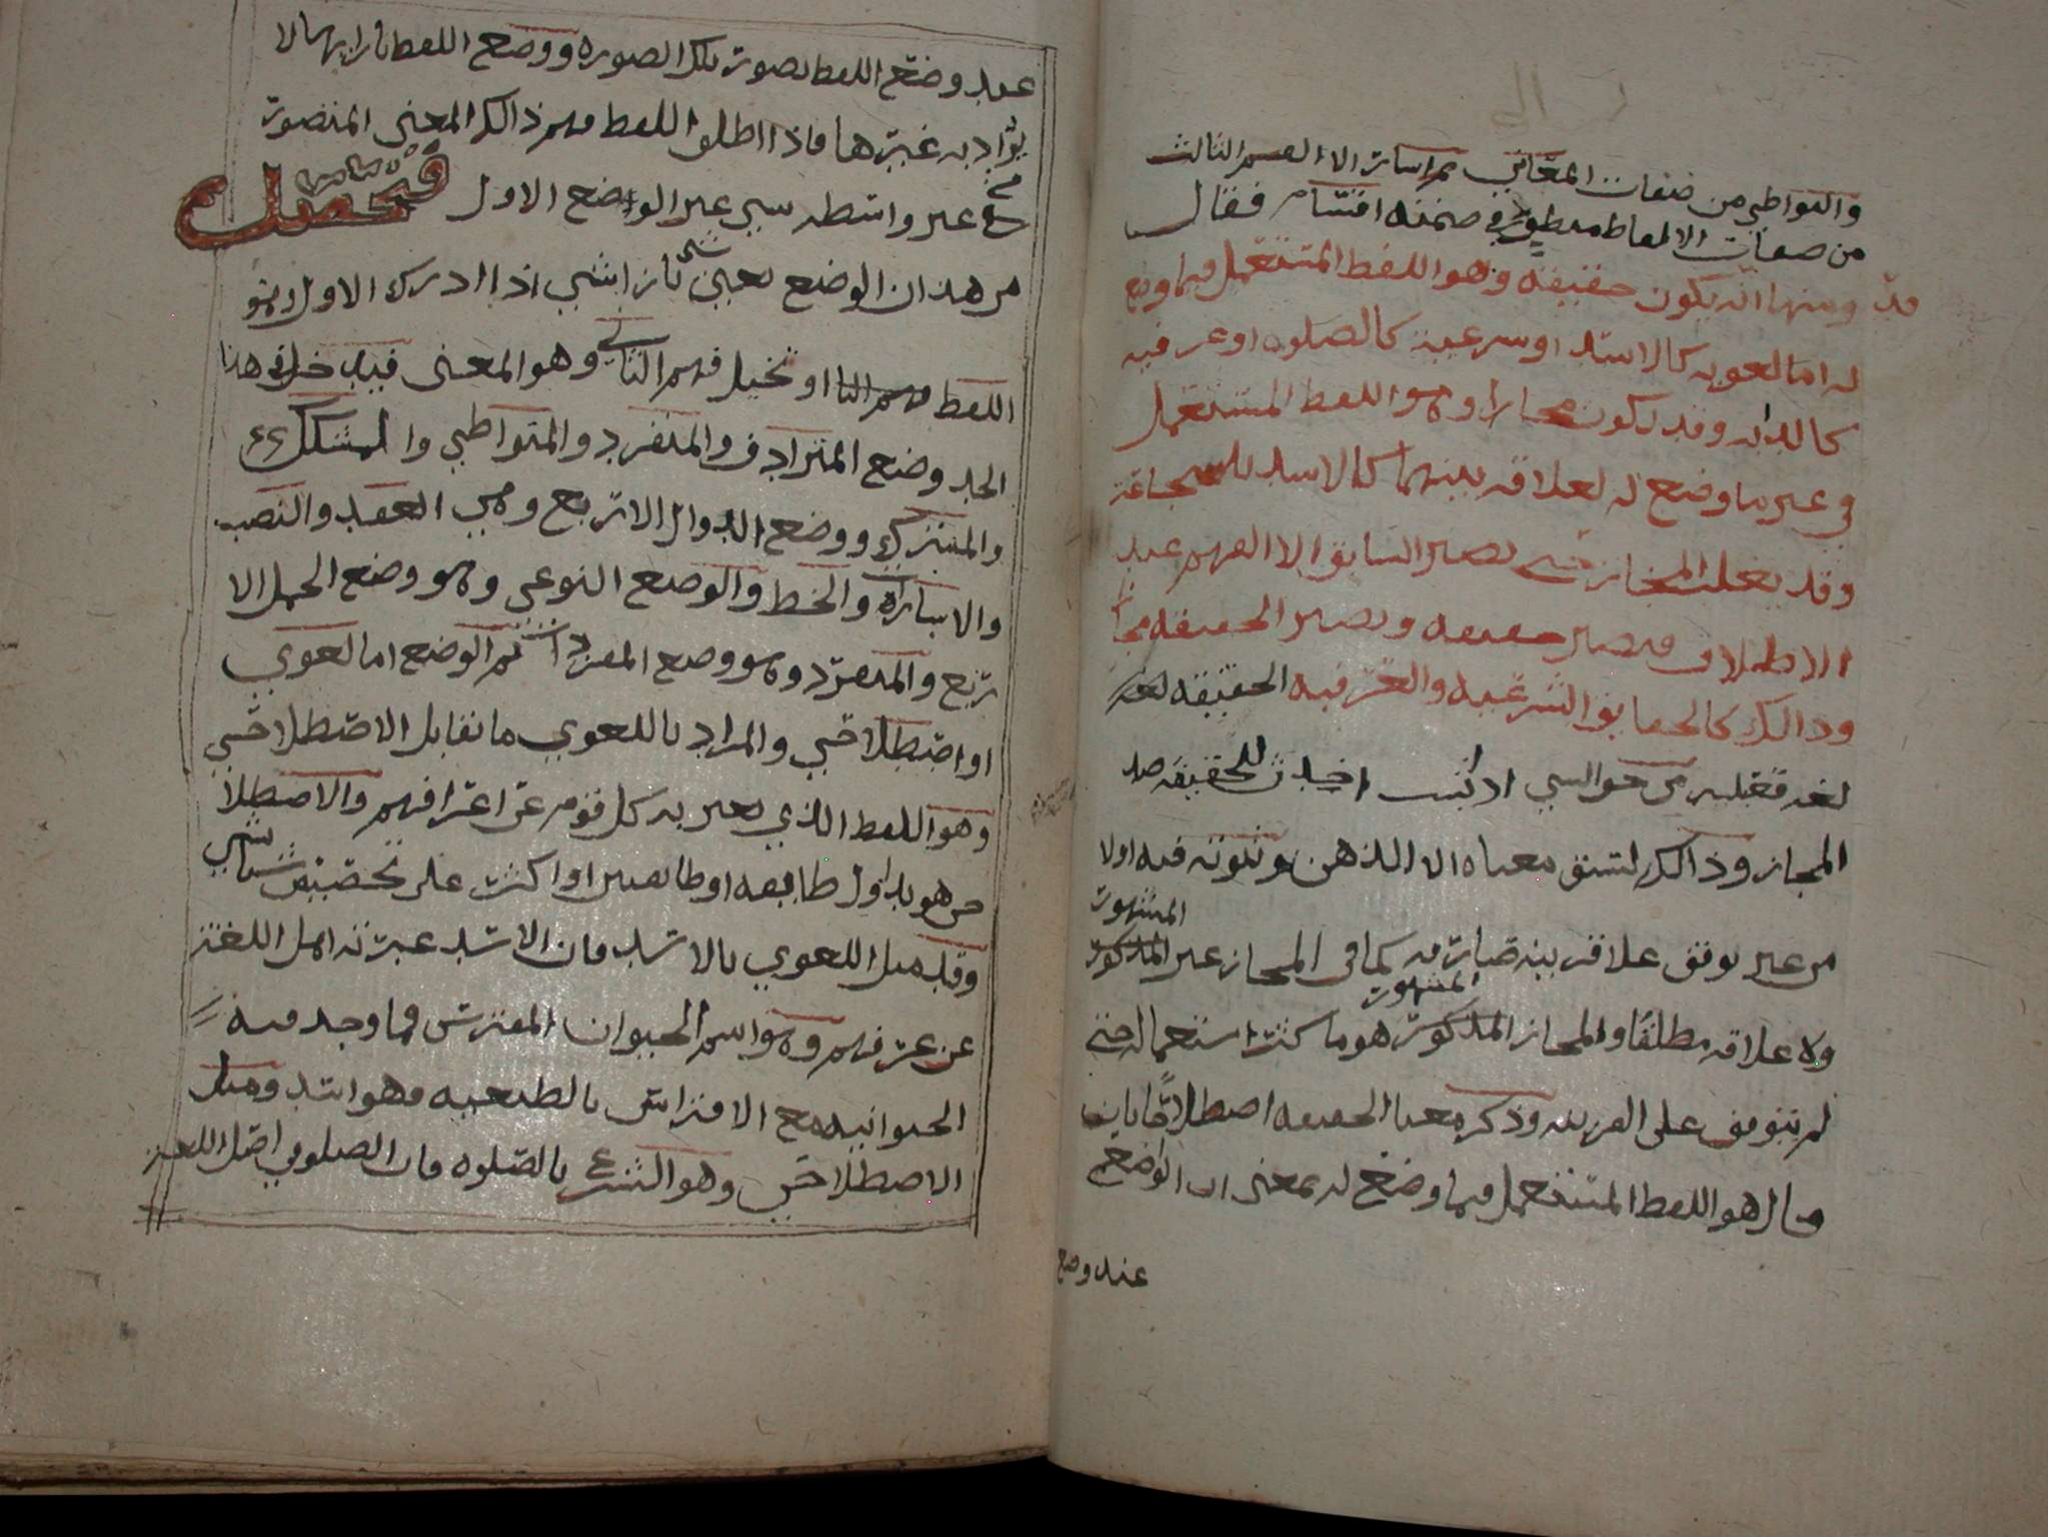 والتواطي من صفات المعاني ثم اشارت الا القسم الثالث
من صفات الالفاظ في ضمنه اقتسام فقال
قد ومنها انه يكون حقيقه وهو اللفظ المستعمل فيما وضع
له اما لغويه كالاسد او شرعيه كالصلوه او عرفيه
كالدابه وقد يكون مجازا وهو اللفظ المستعمل
في غير ما وضع له لعلاقه بينهما كالاسد للشجاعة
وقد يغلب المجاز حتى يصير السابق الا الفهم عند
الاطلاق فيصير حقيقه وتصير الحقيقه مجازا
وذالك كالحقايق الشرعيه والعرفيه الحقيقه لغه
لغه فعليه من حق الشي اذ ثبت للحقيقه ضد
المجاز وذالك لسبق معناه الا الذهن وثبوته فيه اولا
المشهور
من غير توقف علاقه بينه كما في المجاز غير المذكور
المشهور
ولا علاقه مطلقا والمجاز المذكور هو ما كثر استعماله حتى
لم يتوقف على القرينه وذكر معنا الحقيقه اصطلاحا بان
قال هو اللفظ المستعمل فيما وضع له بمعنى ان الواضع
عند وضع
عند وضع اللفظ تصور تلك الصوره ووضع اللفظ بازايها لا
يراد به غيرها فاذا اطلق اللفظ فهم ذالك المعنى المتصور
من غير واسطه شي غير الوضع الاول فحصل
من هذا ان الوضع تعيين شي بازا شي اذا ادرك الاول وهو
اللفظ فهم الثاني او تخيل فهم الثاني وهو المعنى فيدخل في هذا
الحد وضع المترادف والمنفرد والمتواطي والمشكك
والمشترك ووضع الدوال الاربع وهي العقد والنصب
والاشاره والخط والوضع النوعي وهو وضع الجمل الا
ربع والمنفرد وهو وضع المفردات ثم الوضع اما لغوي
او اصطلاحي والمراد باللغوي ما تقابل الاصطلاحي
وهو اللفظ الذي يعبر به كل قوم عن اعرافهم والاصطلا
حي هو تداول طايفه او طايفتين او اكثر على تخصيص شي بشي
وقد مثل اللغوي بالاسد فان الاسد عبرت به اهل اللغه
عن عرفهم وهو اسم الحيوان المفترس فما وجد فيه
الحيوانيه مع الافتراس بالطبعيه فهو اسد ومثل
الاصطلاحي وهو الشرعي بالصلوه فان الصلوه في اصل اللغه